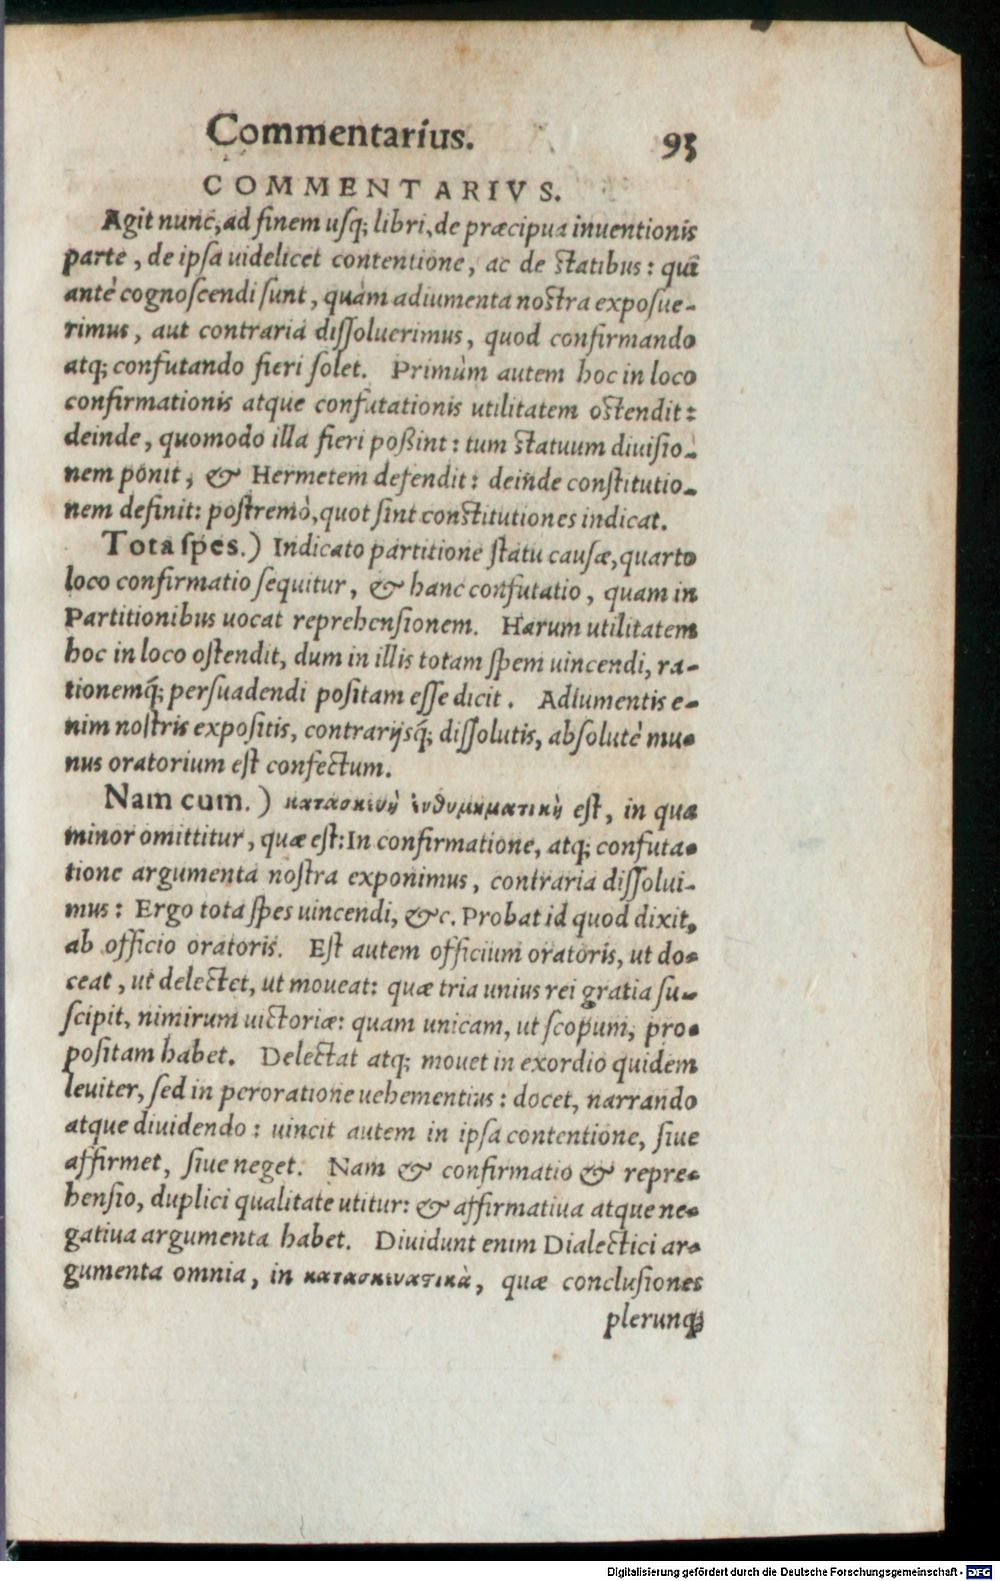 Commentarius. 95
COMMENTARIVS.
Agit nunc, ad finem usq; libri, de præcipua inuentionis
parte, de ipsa uidelicet contentione, ac de statibus: qui
antè cognoscendi sunt, quàm adiumenta nostra exposue-
rimus, aut contraria dissoluerimus, quod confirmando
atq; confutando fieri solet. Primùm autem hoc in loco
confirmationis atque confutationis utilitatem ostendit:
deinde, quomodo illa fieri poßint: tum statuum diuisio-
nem ponit, & Hermetem defendit: deinde constitutio-
nem definit: postremò, quot sint constitutiones indicat.
Tota spes.) Indicato partitione statu causæ, quarto
loco confirmatio sequitur, & hanc confutatio, quam in
Partitionibus uocat reprehensionem. Harum utilitatem
hoc in loco ostendit, dum in illis totam spem uincendi, ra-
tionemq́; persuadendi positam esse dicit. Adiumentis e-
nim nostris expositis, contrarijsq́; dissolutis, absolutè mu-
nus oratorium est confectum.
Nam cum.) κατασκευὴ ἐνθυμηματικὴ est, in qua
minor omittitur, quæ est: In confirmatione, atq; confuta-
tione argumenta nostra exponimus, contraria dissolui-
mus: Ergo tota spes uincendi, &c. Probat id quod dixit,
ab officio oratoris. Est autem officium oratoris, ut do-
ceat, ut delectet, ut moueat: quæ tria unius rei gratia su-
scipit, nimirum uictoriæ: quam unicam, ut scopum, pro-
positam habet. Delectat atq; mouet in exordio quidem
leuiter, sed in peroratione uehementius: docet, narrando
atque diuidendo: uincit autem in ipsa contentione, siue
affirmet, siue neget. Nam & confirmatio & repre-
hensio, duplici qualitate utitur: & affirmatiua atque ne-
gatiua argumenta habet. Diuidunt enim Dialectici ar-
gumenta omnia, in κατασκευατικὰ, quæ conclusiones
plerunq;
Digitalisierung gefördert durch die Deutsche Forschungsgemeinschaft - DFG